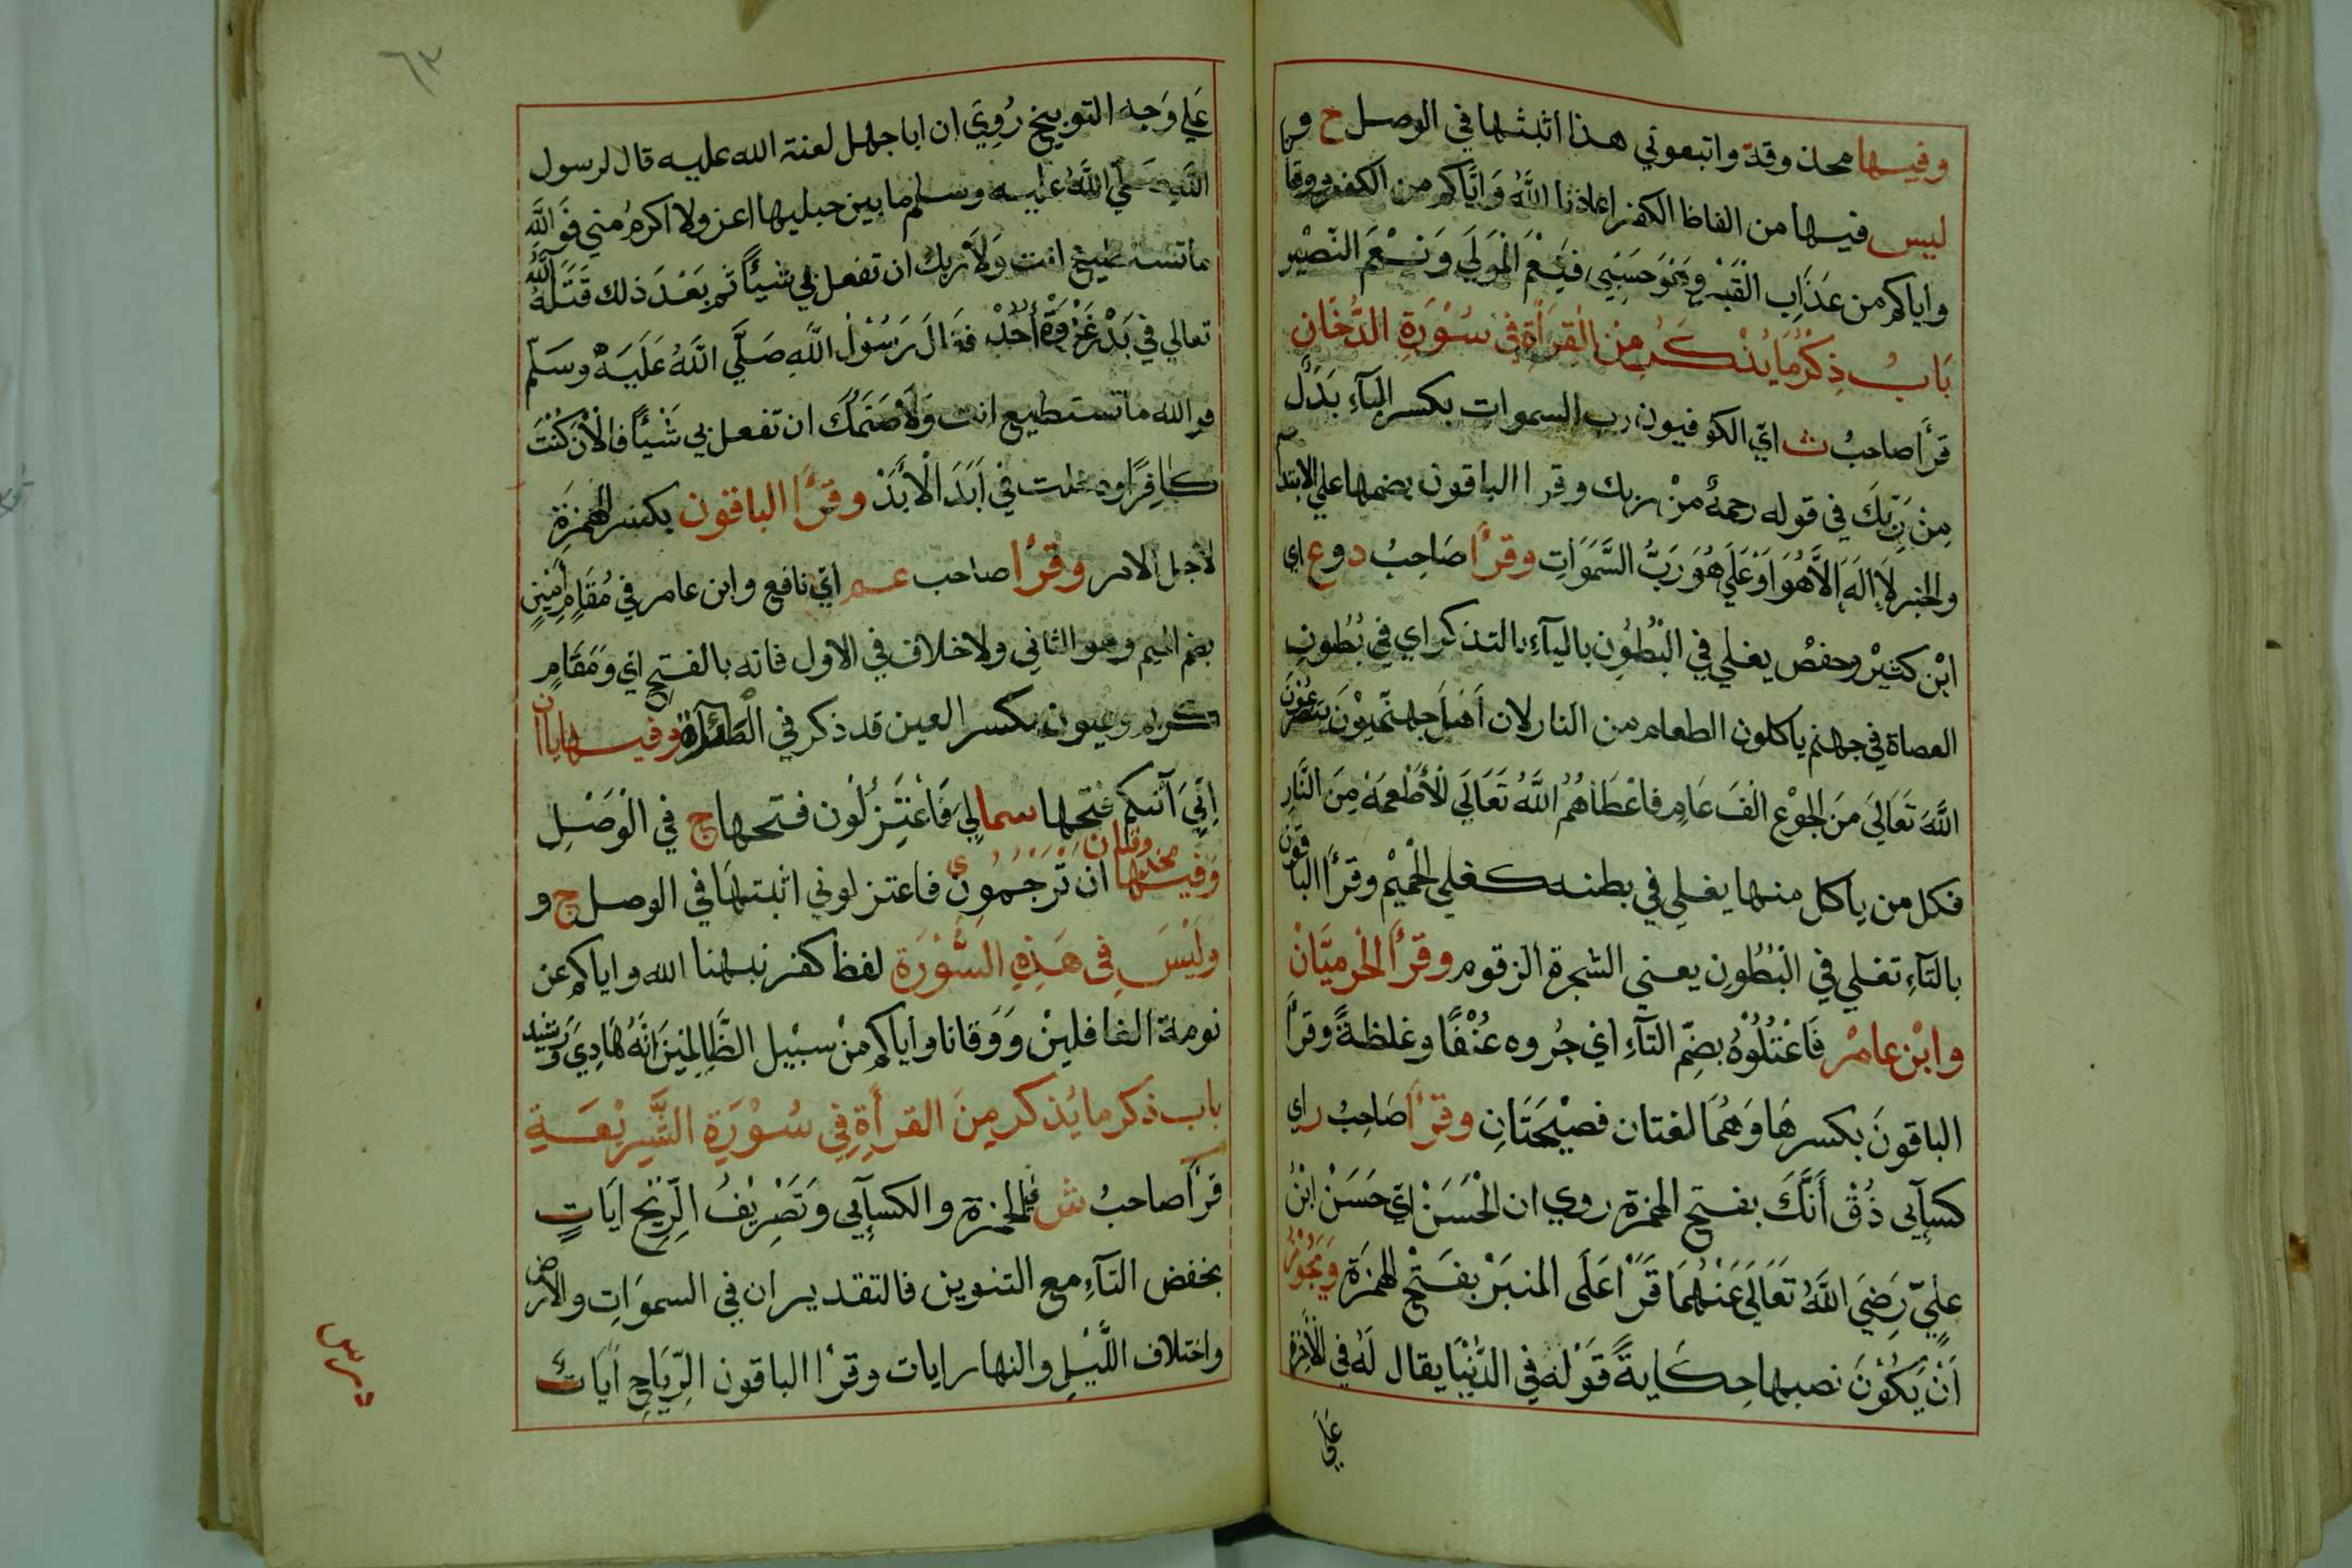 وفيها محذوفة واتبعوني هذا اثبتها في الوصل ح و
ليس فيها من الفاظ الكفر اعاذنا اللّٰهُ وَاِيَّاكم من الكفر ووقا
واياكم من عَذَابِ القَبْرِ وَهُوَ حَسْبِي فَنِعْمَ المَوْلَي وَنِعْمَ النَّصِيْر
بَابُ ذِكْرُ مَا يُذْكَرُ مِنَ القِرَأَةِ فِي سُوْرَةِ الدُّخَانِ
قرأ صاحبُ ث ايّ الكوفيون رب السموات بكسر البآءِ بَدَلٌ
مِنْ رَبِّكَ في قوله رحمةً مِنْ ربك وقرا الباقون بضمها علي الابتدا
والخبر لَا اِلَهَ اِلَّا هُوَ اَوْ عَلَي هُوَ رَبُّ السَّمَوَاتِ وقرأ صَاحِبُ د وع اي
ابْن كثيْر وحفصْ يغلي في البُطُوْنِ باليآءِ بالتذكر اي في بُطُونِ
العصاة في جهنم ياكلون الطعام من النار لان اَهْلَ جهنّم يَتَضَرَّعُوْنَ
اللّٰهَ تَعَالَي مِنَ الجُوْعِ الفَ عَامٍ فاعْطَاهُمُ اللّٰهُ تَعَالَي الْأَطْعِمَةَ مِنَ النَّارِ
فكل من ياكل منها يغلي في بطنه كغلي الْحَمِيْم وقرأ الباقون
بالتآءِ تغلي في البُطُوْنِ يعني الشجرة الزقوم وقرأ الحرميَّانْ
وابْن عامرْ فَاعْتُلُوْهُ بضمّ التآءِ اي جُروه عُنْفًا وغلظةً وقرأ
الباقونَ بكسرهَا وَهُمَا لغتان فصيْحَتَانِ وقرأ صَاحِبُ ر اي
كسآئي ذُقْ أَنَّكَ بفتح الهمزة روي ان الْحَسَنْ ايّ حَسَنْ ابْنُ
عليّ رَضِيَ اللّٰهُ تَعَالَي عَنْهُمَا قَرَأَ عَلَي المنبَرْ بفَتْحِ الهمزَةِ وَيَجُوْزُ
اَنْ يَكُوْنَ نصبها حِكَايةً قَوْله في الدُّنْيَا يقال لَهُ في الْأَخِرَة
عَلي
٦٣
عَلي وَجه التوبيخ رُوِيَ ان اباجهل لعنة الله عليه قال لرسول
اللّٰهِ صَلَّي اللّٰهُ عليه وسلم ما بين جبليها اعز ولا اكرمُ مني فَوَاللّٰهِ
ماتستطيع انت وَلَا رَبك ان تفعل بي شيأً ثم بَعْدَ ذلك قَتَلَهُ اللّٰهُ
تعالي في بَدْر غَزْوَةِ أُحُدْ فقَالَ رَسُوْلُ اللّٰهِ صَلَّي اللّٰهُ عَلَيْهِ وسَلّمْ
فوالله ماتستطيع انت وَلَا صَنَمُكَ ان تفعل بي شَيْأً فالْأَنَ كُنْتَ
كَافِرًا ودخلت في اَبَدَ الْأَبَدْ وقرأ الباقون بكسر الهمزَةِ
لاجل الامر وقرأ صاحب عم ايّ نافع وابن عامر في مُقَامٍ أَمِيْنٍ
بضم الميم وهو الثاني ولا خلاف في الاول فانه بالفتح اي وَمَقَامٍ
كريم وعيون بكسر العين قد ذكر في المائدة وفيها ياان
اِنِّيَ آتيكم فتحها سما لِيَ فَاعْتَزِلُون فتحها ج في الْوَصْلِ
وَفيها محذوفتان ان تَرْجُمُونِ ي فاعتزلوني اثبتهَا في الوصل ج و
وَلَيْسَ فِي هَذِهِ السُّوْرَة لفظ كفر نبهنا الله واياكم عن
نومة الغافلِيْن وَوَقانا واياكم مِنْ سبْيل الظَّالِمِيْنَ اِنَّهُ هَادِيَ وَرشيد
باب ذكر مايُذكر مِنَ القرأَةِ فِي سُوْرَةِ الشَّرِيْعَةِ
قَرأَ صاحبُ ش اي حمزة والكسآئي وَتَصْرِيْفُ الرِّيْحِ اَيَاتٍ
بخفض التآءِ مع التنوين فالتقدير ان في السموَاتِ والارض
واختلاف اللّيْلِ والنهار ايات وقرأ الباقون الرِّيَاحِ اَيَاتٌ